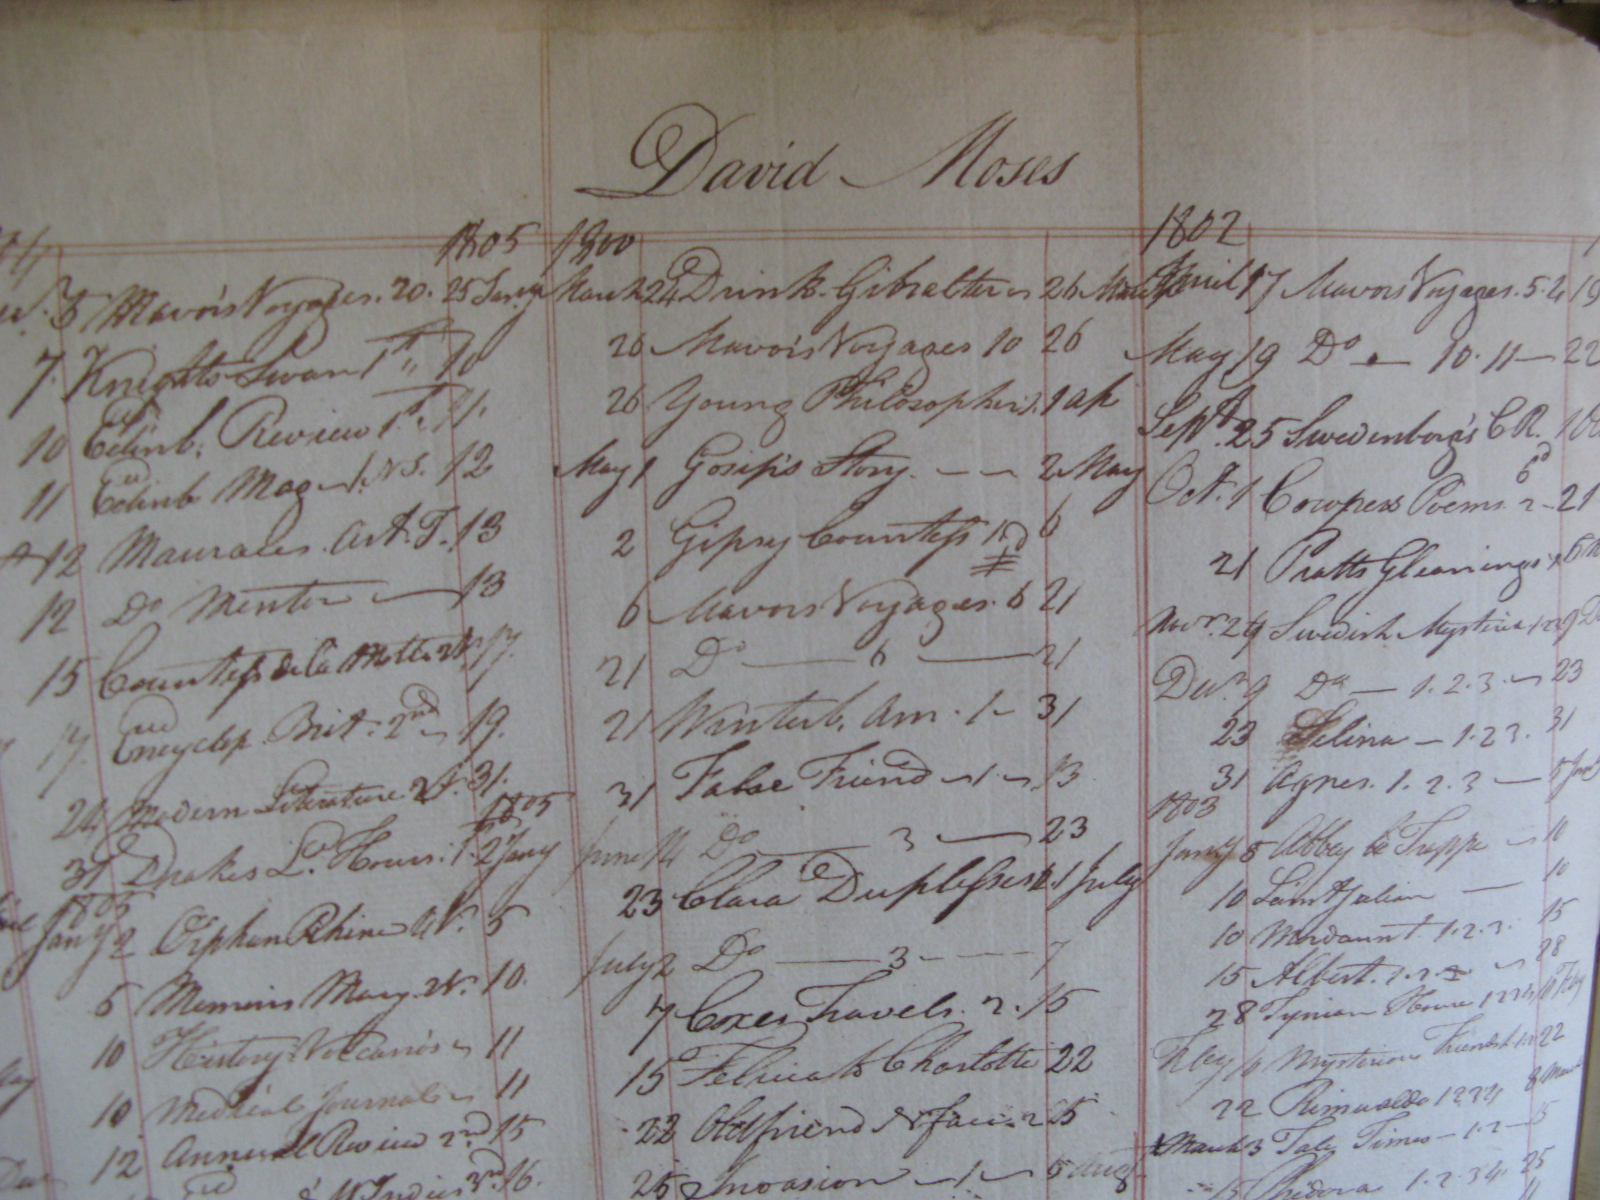 David Moses
1805
5 Mavor's Voyages. 20. 25 Jany
7. Knights Swan 1st 10
10 Edinb. Review 1st. 11.
11 Edinb Mag 1. N.S. 12
12 13
12 Do Mentor — 13
15 Countess de la Motte 17.
17. Encyclop. Brit. 2nd 19.
24 Modern Literature 31.
1805
31 Drakes Ly. Hours. 1. 2 Jany
1805
Jany 2 Orphan Rhine 5
5 Memoirs Mary. 10.
10 History Volcanoes 11
10 Medical Journal 11
12 Annual Review 2nd 15
3rd 16.
1800
March 24 Drink. Gibralter 26
26 Mavor's Voyages 10 26
26 Young Philosopher 1 ap
May 1 Gosip's Story. — — 2 May
2 Gipsy Countess 6
6 Mavors Voyages. 6 21
21 Do — 6 — 21
21 Winterb. Am. 1 — 31
31 False Friend — 1 — 13
June 14 Do — 3 — 23
23 Clara Duplessis July
July 2 Do — 3 — 7
7 Coxes Travels. 2. 15
15 Felicia to Charlotte 22
22 Old friend N face. 25
25 Invasion — 1 — 5 Aug
1802
April 17 Mavors Voyages. 5. 19
May 19 Do — 10. 11 — 22
Sept. 25 Swedenborg's
Oct. 1 Cowpers Poems 2 — 21
21 Pratts Gleanings
Novr. 29 Swedish Mysteries
Decr. 9 Do — 1. 2. 3. — 23
23 Selina — 1. 2 3. 31
31 Agnes. 1. 2. 3 — 5 Jany
1803
Jany 5 Abbey La Trappe — 10
10 Saint Julian — 10
10 Mordaunt. 1. 2. 3. 15
15 Albert. 1. 2. 28
28 House
Feby 10 Mysterious Friendship 22
22 Rimualdo 1 2 3 4
March 3 Tale Times — 1. 2 — 15
1. 2. 3 4 25